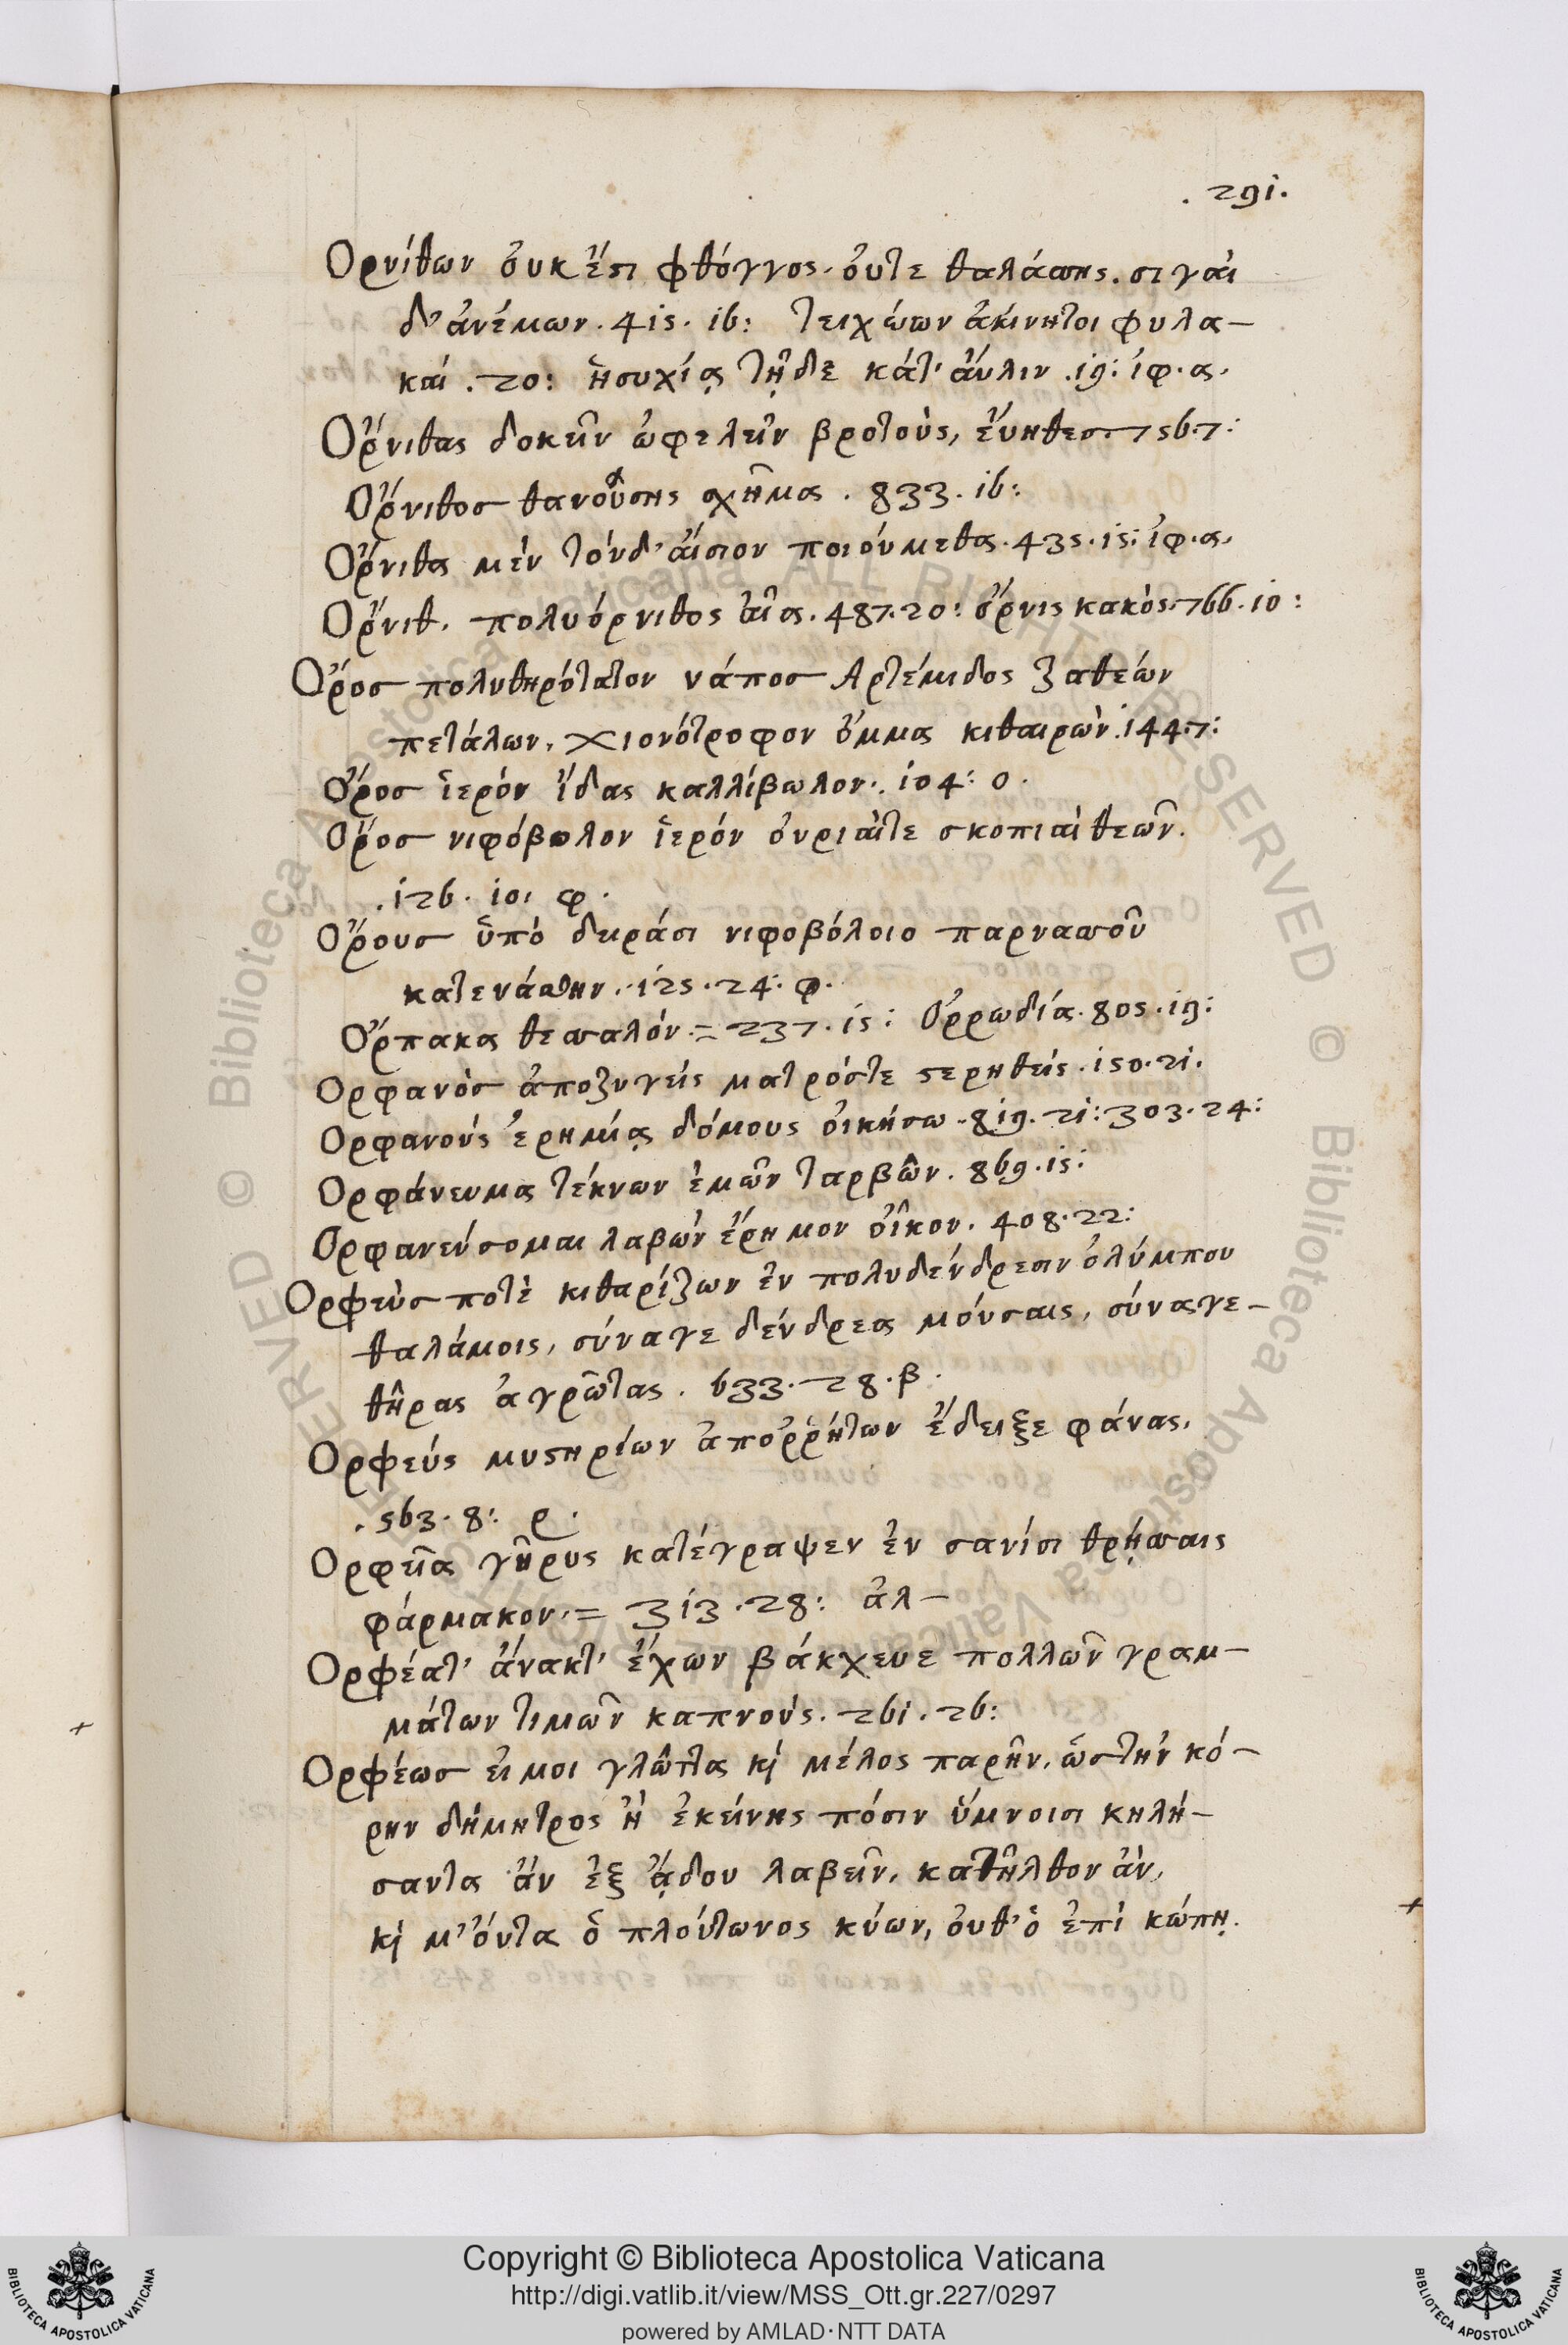 . 291.
Ορνίθων ὀυκ ἔστι φθόγγος. ὄυτε θαλάσσης. σιγαὶ
δ' ἀνέμων. 415. 16: τειχέων ἀκίνητοι φυλα-
καί. 20: ἡσυχίᾳ τῇδε κάτ' ἄυλιν. 19: ἰφ. α.
Ὄρνιθας δοκεῖν ὠφελεῖν βροτοὺς, ἔυηθες. 756.7:
Ὄρνιθος θανούσης σχῆμα. 833. 16:
Ὄρνιθα μὲν τόνδ' ἄισιον ποιούμεθα. 435. 15: ἰφ. α.
Ὄρνιθ. πολυόρνιθος ἆια. 487. 20: ὄρνις κακὸς. 766. 10:
Ὄρος πολυθηρότατον νάπος Αρτέμιδος ζαθέων
πετάλων. χιονότροφον ὄμμα κιθαιρὼν. 144.7:
Ὄρος ἱερόν ἴδας καλλίβωλον. 104: 0.
Ὄρος νιφόβολον ἱερόν ὀυριαίτε σκοπιαὶ θεῶν.
. 126. 10, φ.
Ὄρους ὑπὸ δειράσι νιφοβόλοιο παρνασσοῦ
κατενάσθην. 125. 24: φ.
Ὄρπακα θεσσαλόν. = 237. 15: Ὀρρωδία. 805. 19:
Ορφανὸς ἀποζυγεὶς ματρόστε στερηθείς. 150. 21.
Ορφανούς ἐρημίᾳ δόμους ὀικήσω. 819. 21: 303. 24:
Ορφάνευμα τέκνων ἐμῶν ταρβῶν. 869. 15:
Ορφανεύσομαι λαβὼν ἔρημον ὀῖκον. 408. 22:
Ορφεὺς ποτὲ κιθαρίζων ἐν πολυδένδρεσιν ὀλύμπου
θαλάμοις, σύναγε δένδρεα μόυσαις, σύναγε-
θῆρας ἀγρῶτας. 633. 28. β.
Ορφεύς μυστηρίων ἀπορρήτων ἔδειξε φάνας,
. 563. 8: ρ.
Ορφεῖα γῆρυς κατέγραψεν ἐν σανίσι θρῄσσαις
φάρμακον. = 313. 28: ἀλ-
Ορφέατ' ἄνακτ' ἔχων βάκχευε πολλῶν γραμ-
μάτων τιμῶν καπνούς. 261. 26:
Ορφέως ει μοι γλῶττα κὶ μέλος παρῆν. ὥστην κό-
ρην δήμητρος ἢ ἐκείνης πόσιν ὕμνοισι κηλή-
σαντα ἄν ἐξ ᾅδου λαβεῖν. κατῆλθον ἄν,
κὶ μ' ὄντα ὁ πλούτωνος κύων, ὀυθ' ὁ ἐπὶ κώπῃ.
Copyright © Biblioteca Apostolica Vaticana
http://digi.vatlib.it/view/MSS_Ott.gr.227/0297
powered by AMLAD·NTT DATA